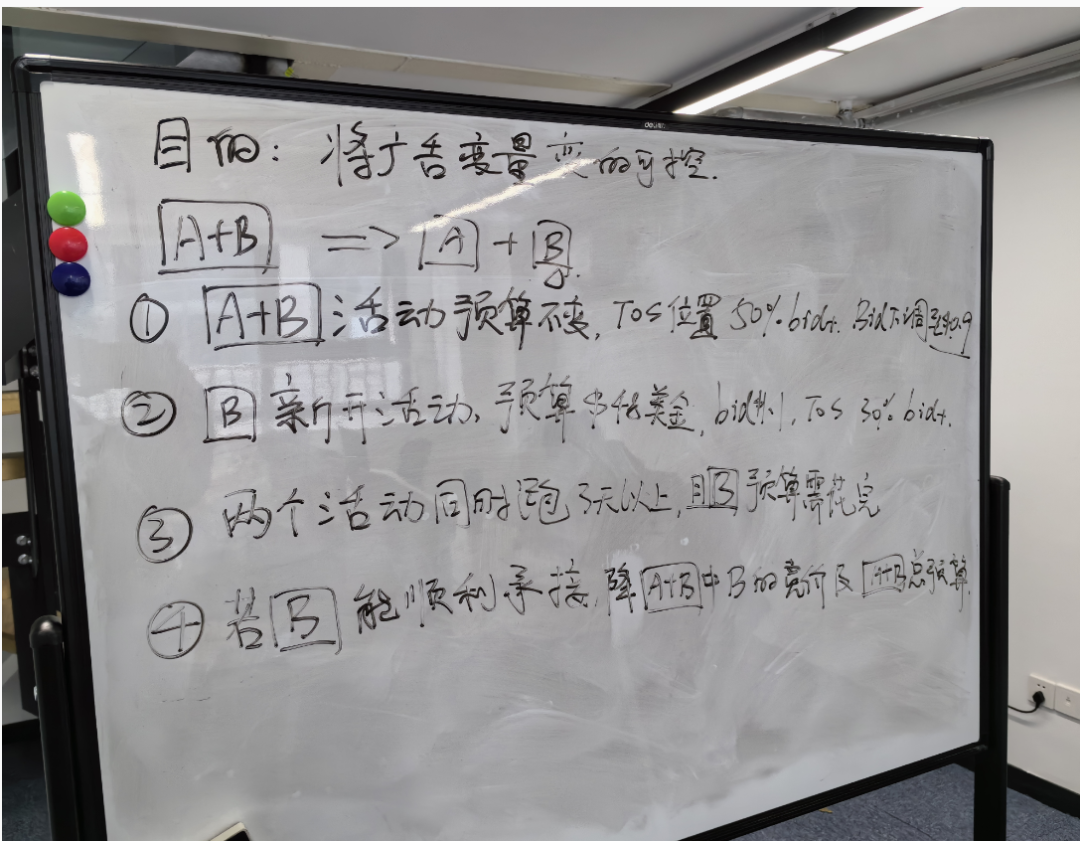 deli
目的: 将广告变量变的可控.
A+B => A + B
① A+B 活动预算不变, TOS 位置 50% bid+. Bid下调至$0.9
② B 新开活动, 预算 $ 美金, bid $1, TOS 30% bid+.
③ 两个活动同时跑3天以上, 且B预算需花完
④ 若 B 能顺利承接, 降 A+B 中 B 的竞价及 A+B 总预算.